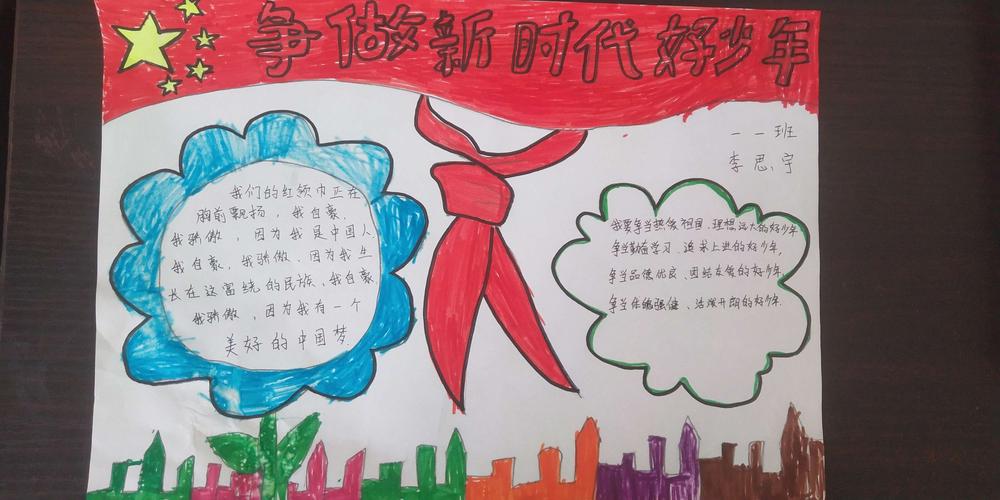 争做新时代好少年
一一班
李思宇
我们的红领巾正在
胸前飘扬，我自豪、
我骄傲，因为我是中国人
我自豪，我骄傲、因为我生
长在这富绕的民族、我自豪、
我骄傲，因为我有一个
美好的中国梦.
我要争当热爱祖国、理想远大的好少年
争当勤奋学习、追求上进的好少年，
争当品德优良、团结友爱的好少年、
争当体魄强健、活泼开朗的好少年.